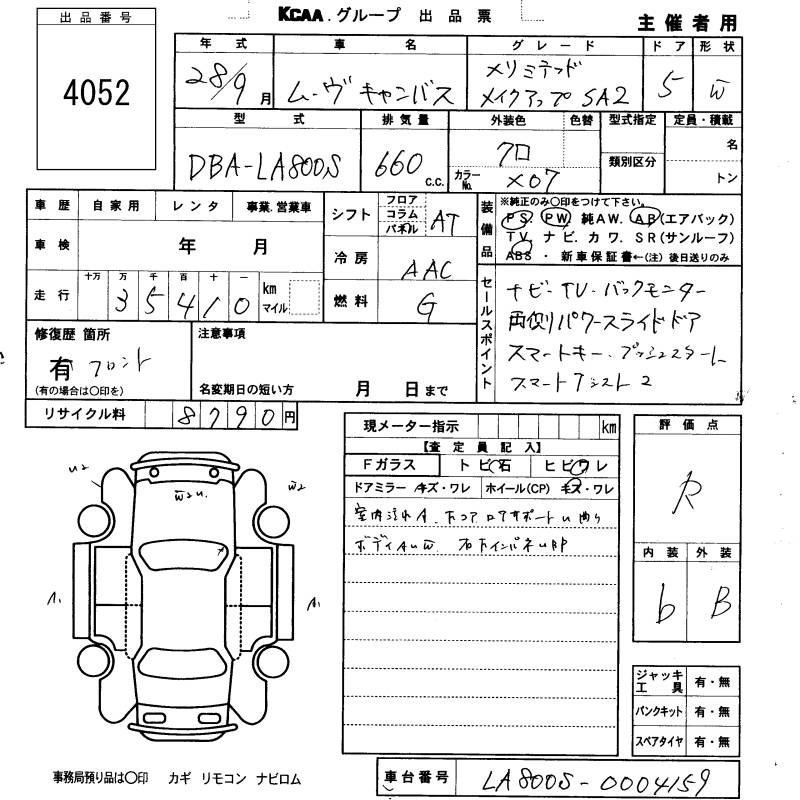 出品番号
4052
KCAA.グループ 出品票
主催者用
年式 車名 グレード ドア 形状
28/9月 ムーヴ キャンバス メイクアップ SA2 5 W
型式 排気量 外装色 色替 型式指定 定員・積載
類別区分
DBA-LA800S 660 c.c. クロ 名
カラーNo. X07 トン
車歴 自家用 レンタ 事業.営業車
車検 年 月
走行 十万 万 千 百 十 一
35410 km マイル
シフト フロア コラム パネル AT
冷房 AAC
燃料 G
装備品
※純正のみ〇印をつけて下さい。
PS. PW. 純AW. AB(エアバック)
TV. ナビ. カワ. SR(サンルーフ)
ABS ・ 新車保証書←(注) 後日送りのみ
セールスポイント
ナビ・TV・バックモニター
両側パワースライドドア
スマートキー・プッシュスタート
スマートアシスト2
修復歴 箇所
有 フロント
(有の場合は〇印を)
注意事項
名変期日の短い方 月 日まで
リサイクル料 8790円
現メーター指示 km
【査定員記入】
Fガラス トビ石 ヒビワレ
ドアミラー キズ・ワレ ホイール(CP) キズ・ワレ
評価点
R
内装 外装
b B
U2
W2
A1
A1
ジャッキ工具 有・無
パンクキット 有・無
スペアタイヤ 有・無
事務局預り品は〇印 カギ リモコン ナビロム
車台番号 LA800S-0004159